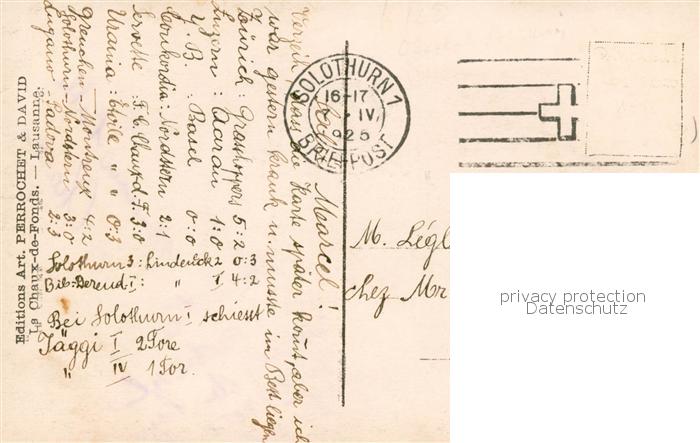 Editions Art. PERROCHET & DAVID
La Chaux-de-Fonds. — Lausanne.
SOLOTHURN 1
16-17
IV
925
BRIEFPOST
Marcel!
Verzeih, dass die Karte später kommt, aber ich
war gestern krank u. musste im Bett liegen
Zürich: Grashoppers 5:2
Luzern: Aarau 1:0
Y. B. Basel 0:0
Concordia: Nordstern 2:1
Servette: F. C. Chaux-d-F. 3:0
Urania: Etoile " " 0:3
Grenchen - Montreux 4:2
Solothurn - Nordstern 3:0
Lugano - Padova 2:3
Solothurn 3: 2 0:3
Bib: I: " I 4:2
Bei Solothurn I schiesst
Jäggi I 2 Tore
" IV 1 Tor.
M. Légl
chez Mr
privacy protection
Datenschutz